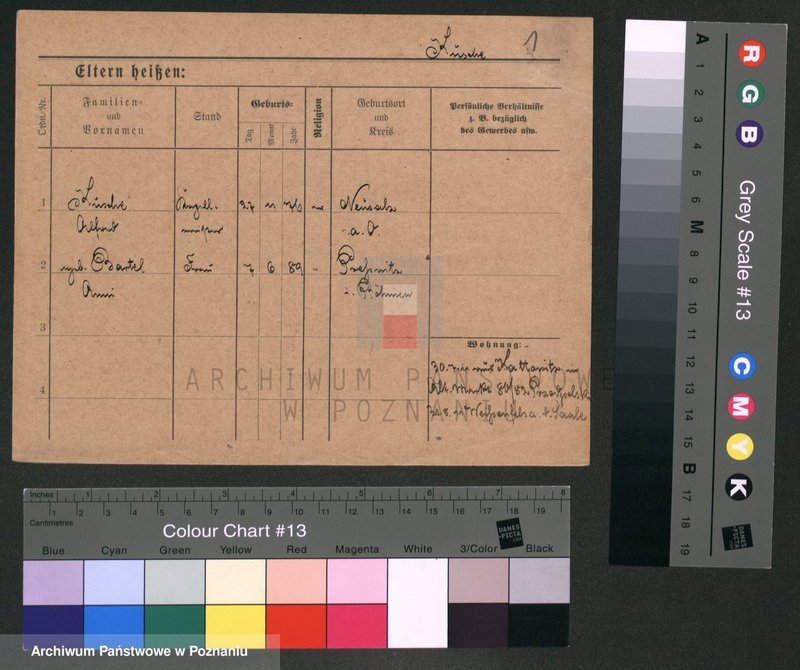 Kusche 1
Eltern heißen:
Ordn.-Nr.
Familien-
und
Vornamen
Stand
Geburts-
Tag
Monat
Jahr
Religion
Geburtsort
und
Kreis
Persönliche Verhältnisse
z. B. bezüglich
des Gewerbes usw.
1 Kusche 27 11 76 Neusalz
Albert a. O
2 geb. Bartel Frau 7 6 89 Preßnitz
Anni i. Böhmen
3
4
Wohnung:
30. aus Kattowitz in
a. d. Saale
ARCHIWUM PAŃSTWOWE
W POZNANIU
A 1 2 3 4 5 6 M 8 9 10 11 12 13 14 15 B 17 18 19
R G B
Grey Scale #13
C M Y K
DANES
-PICTA
.COM
Inches 1 2 3 4 5 6 7 8
Centimetres 1 2 3 4 5 6 7 8 9 10 11 12 13 14 15 16 17 18 19
Colour Chart #13
DANES
-PICTA
.COM
Blue Cyan Green Yellow Red Magenta White 3/Color Black
Archiwum Państwowe w Poznaniu